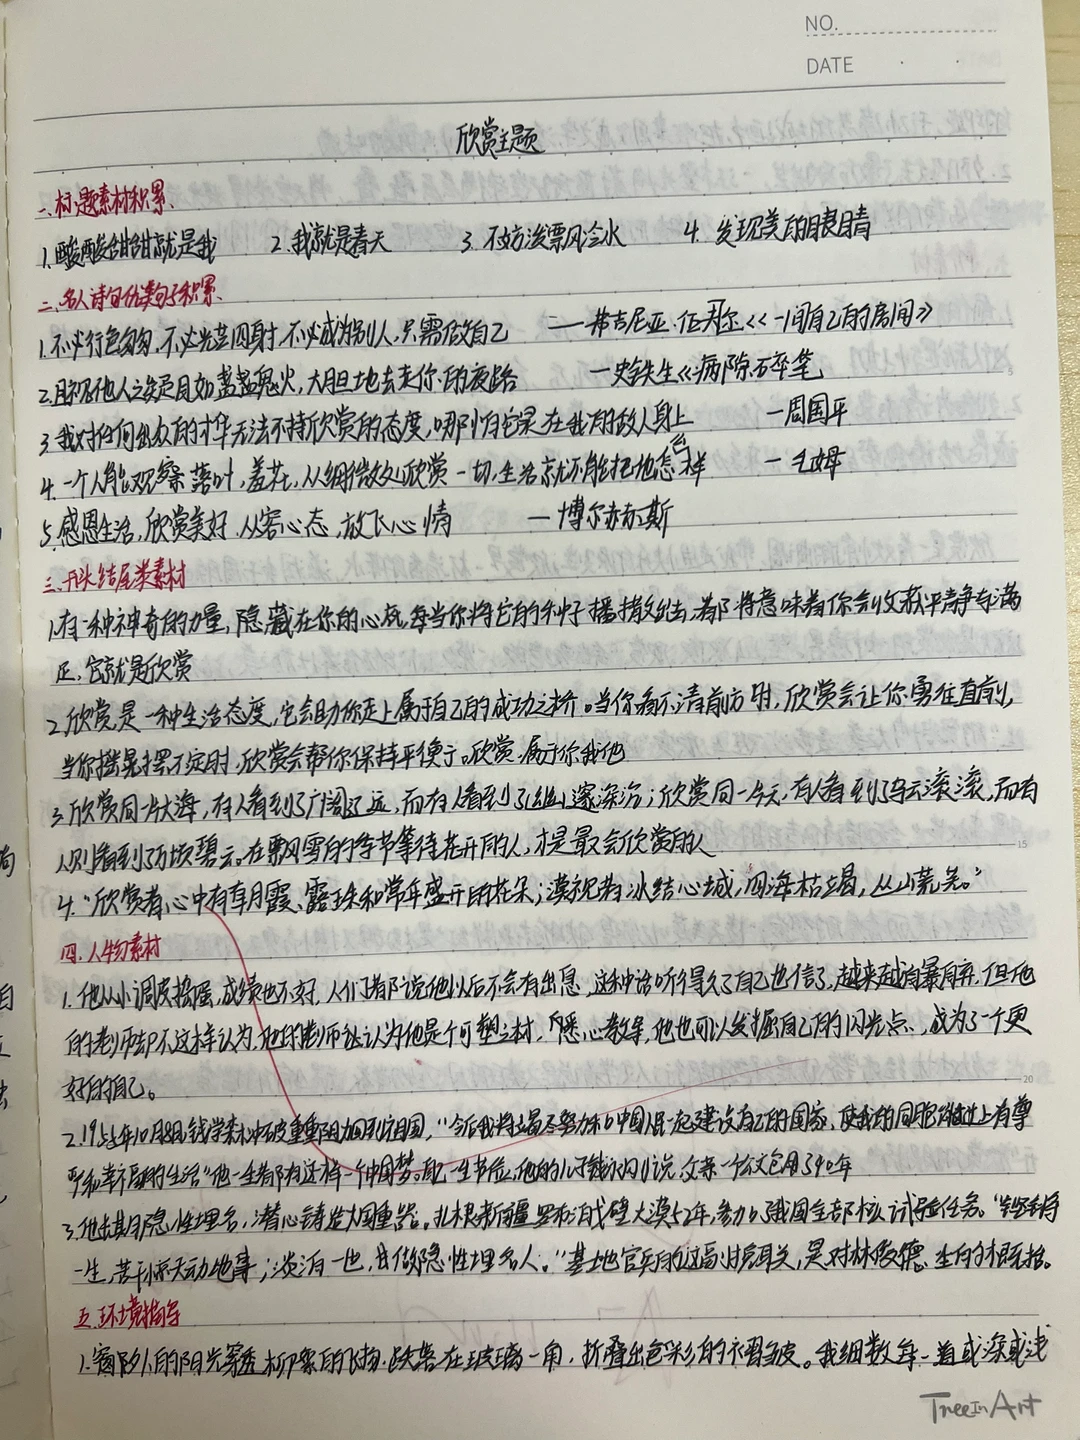 NO.
DATE
欣赏主题
一、标题素材积累、
1.酸酸甜甜就是我 2.我就是春天 3.不妨泼票风冷水 4.发现美的眼睛
二、名人诗句优美句子积累、
1.不必行色匆匆,不必光芒四射,不必成为别人,只需做自己 ——弗吉尼亚·伍尔《一间自己的房间》
2.且视他人之疑目如盏盏鬼火,大胆地去走你的夜路 —史铁生《病隙碎笔
3.我对任何出众的才华无法不持欣赏的态度,哪怕它是在我的敌人身上 —周国平
4.一个人能观察落叶,羞花,从细微处欣赏一切,生活就不能把他怎么样 —毛姆
5.感恩生活,欣赏美好,从容心态,放飞心情 —博尔赫斯
三、开头结尾类素材
1.有一种神奇的力量,隐藏在你的心底,每当你将它的种子播撒出去,都将意味着你会收获平静与满
足,它就是欣赏
2.欣赏是一种生活态度,它会助你走上属于自己的成功之桥。当你看不清前方时,欣赏会让你勇往直前,
当你摇晃摆不定时,欣赏会帮你保持平衡。欣赏,属于你我他
3.欣赏同一片大海,有人看到了广阔辽远,而有人看到了幽邃深沉;欣赏同一片天,有人看到乌云滚滚,而有
人则看到了万顷碧云。在飘雪的季节等待花开的人,才是最会欣赏的人
4."欣赏者,心中有朝霞、露珠和常年盛开的花朵;漠视者,冰结心城,四海枯竭,丛山荒芜。"
四、人物素材
1.他从小调皮捣蛋,成绩也不好,人们都说他以后不会有出息,这种话听得久了自己也信了,越来越自暴自弃,但他
的老师却不这样认为,他的老师认为他是个可塑之材,悉心教导,他也可以发掘自己的闪光点、成为了一个更
好的自己。
2.1955年10月8日,钱学森冲破重重阻力回到祖国,"今后我将竭尽努力和中国人民一起建设自己的国家,使我的同胞过上有尊
严和幸福的生活"他一生都有这样一个中国梦。他的儿子钱永刚说,父亲
3.他隐姓埋名,潜心铸造大国重器。扎根新疆罗布泊戈壁大漠52年,参加了我国全部核试验任务。"铿锵
一生,苦干惊天动地事;淡泊一世,甘做隐姓埋名人。"基地官兵的这副对联,是对林俊德一生的概括。
五、环境描写
1.窗外的阳光穿透柳絮的飞扬,跌落在玻璃一角,折叠出色彩的褶皱。我细数每一道或深或浅
TreeInArt